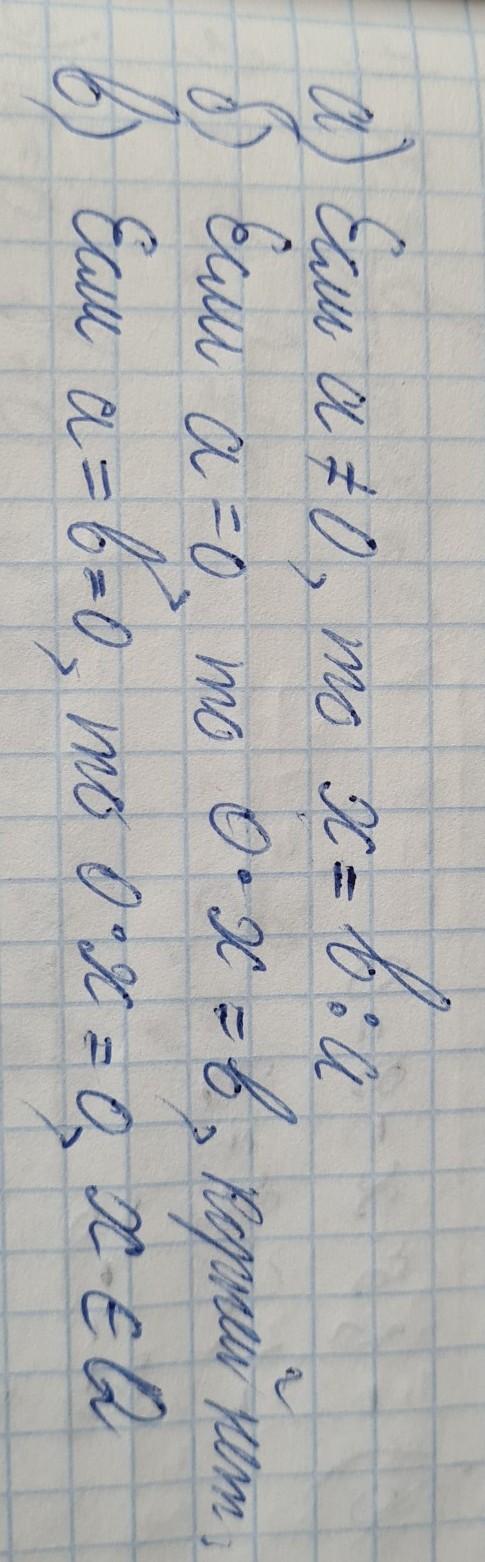 а) Если а ≠ 0, то x = b : а
б) Если а = 0, то 0 · x = b, корней нет,
в) Если а = b = 0, то 0 · x = 0, x ∈ Q